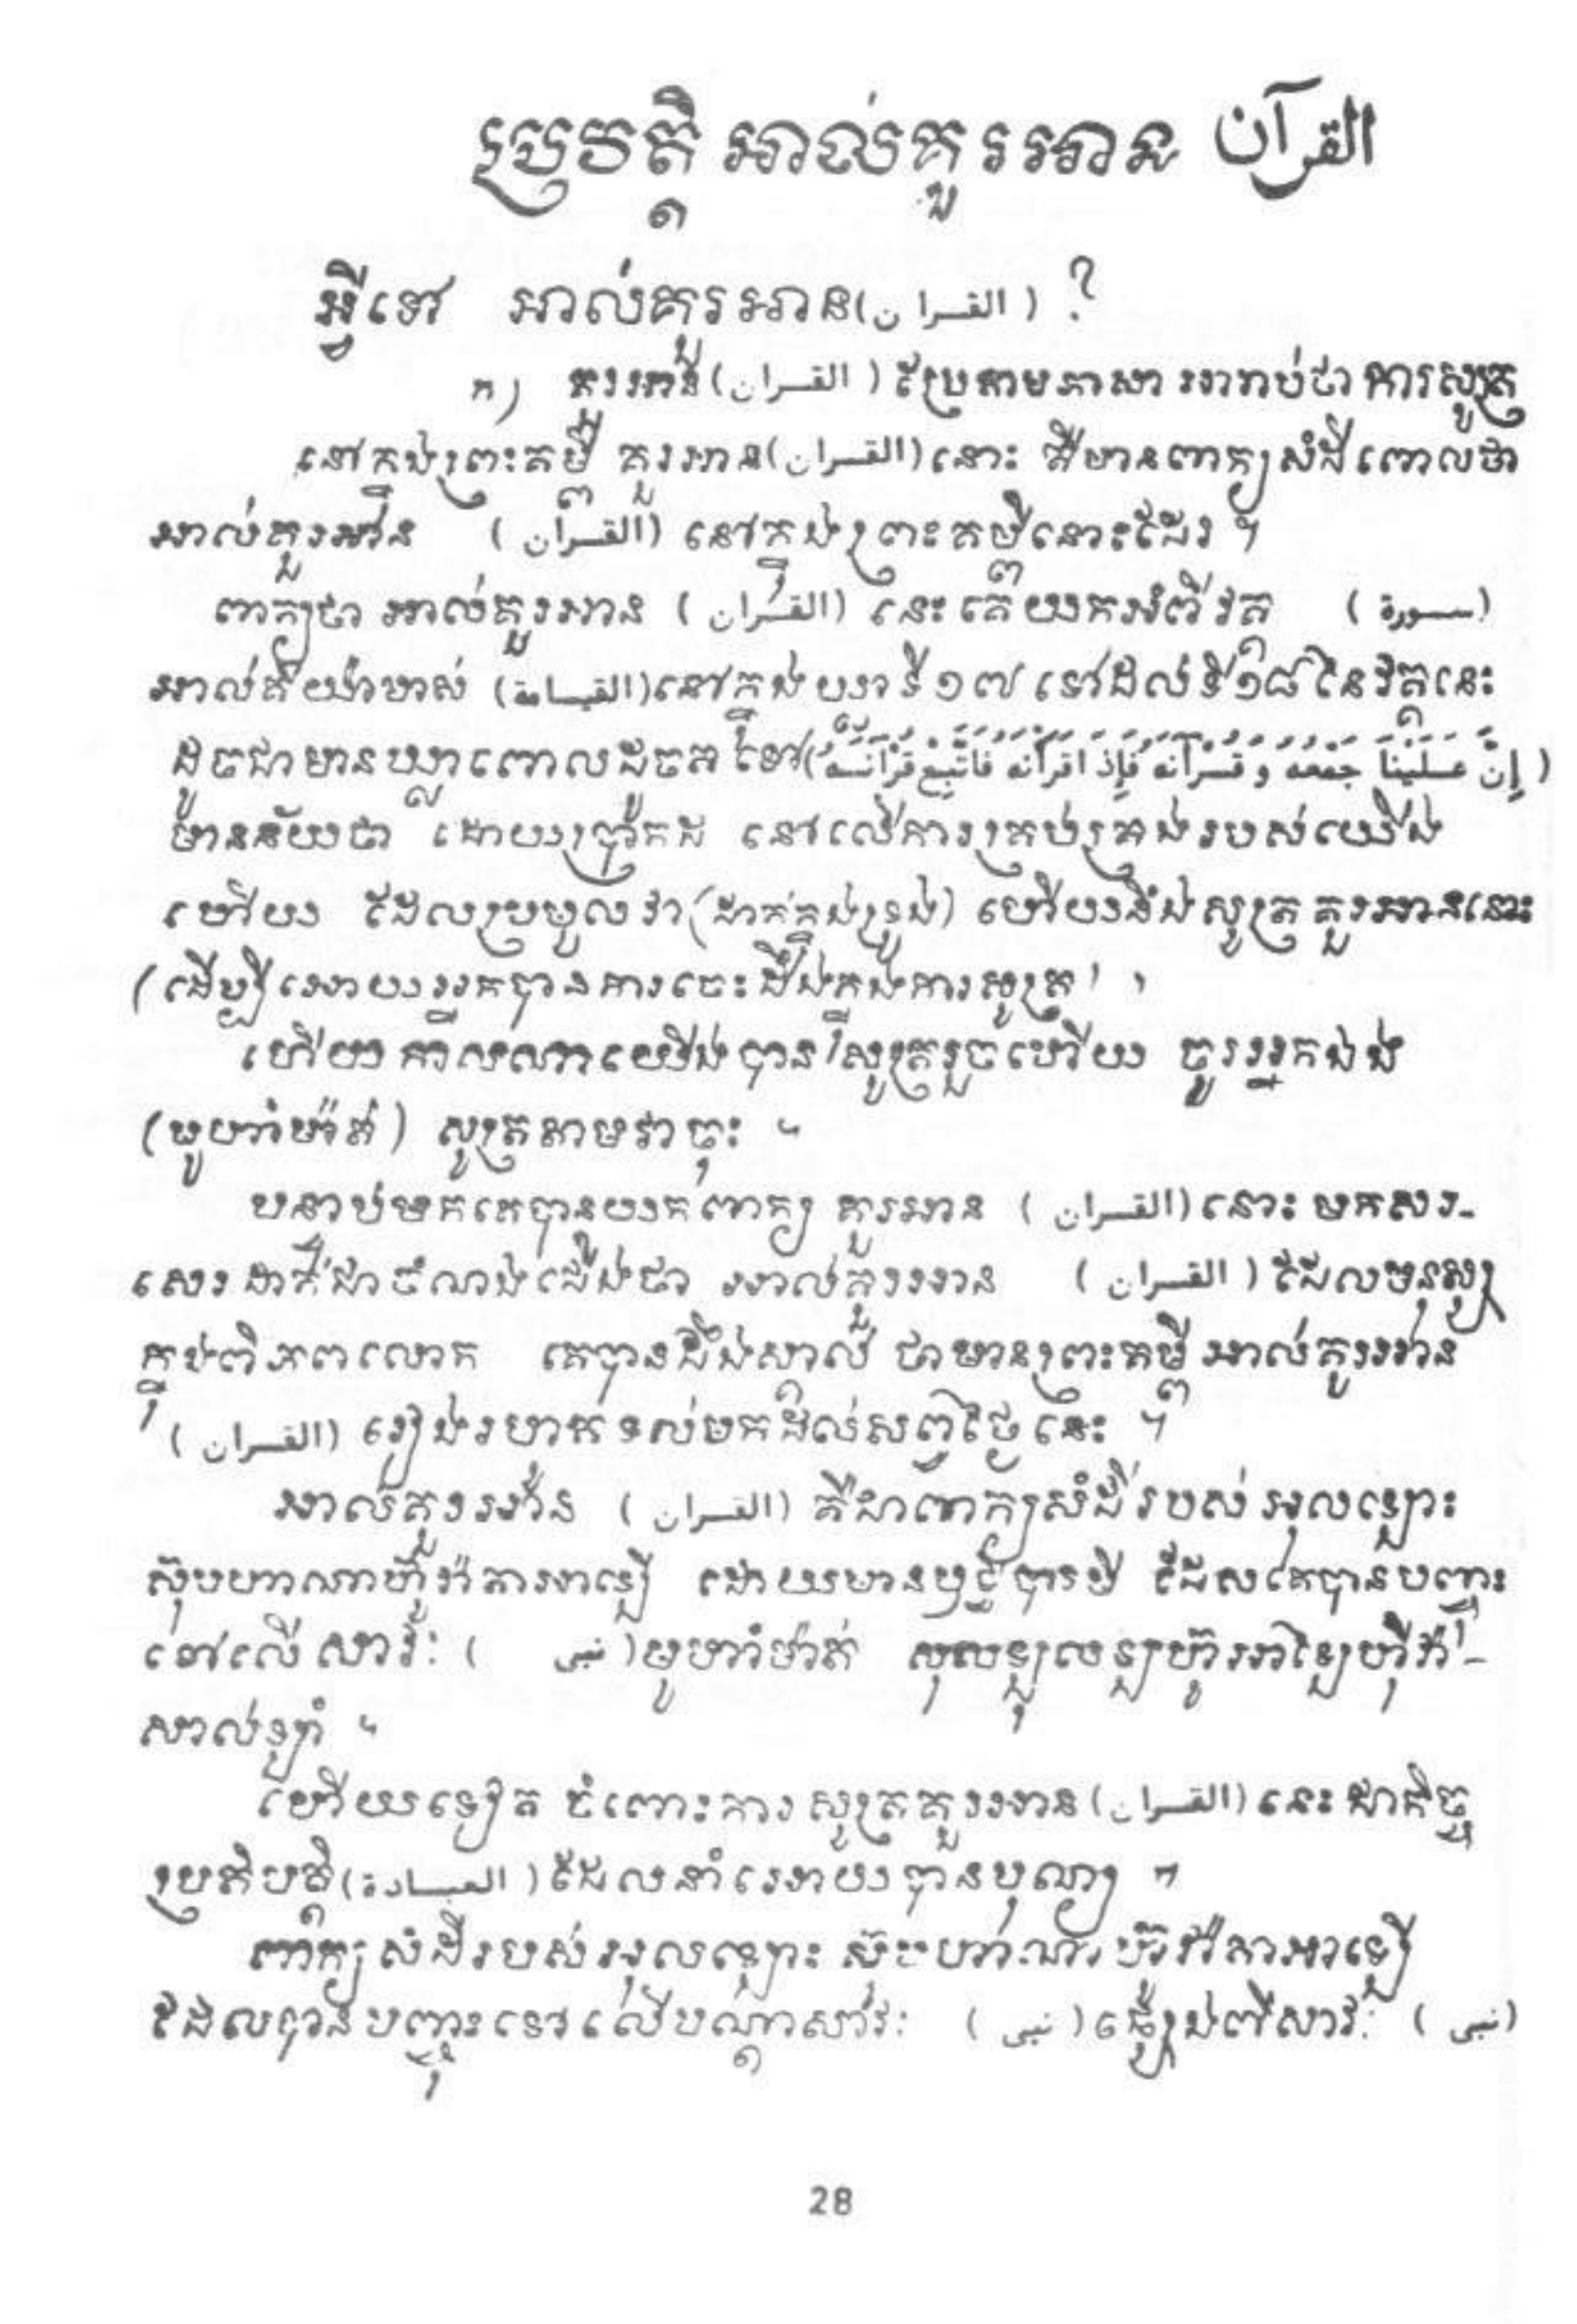 ប្រវត្តិ អាល់គួរអាន القرآن
អ្វីទៅ អាល់គួរអាន (القران) ?
ក) គួរអាន (القران) ប្រែតាមភាសា អារាប់ថា ការសូត្រ
នៅក្នុងព្រះគម្ពី គួរអាន (القران) នោះ គឺមានពាក្យសំដីពោលថា
អាល់គួរអាន (القرآن) នៅក្នុងព្រះគម្ពីនោះដែរ ។
ពាក្យថា អាល់គួរអាន (القرآن) នេះ គេយកអំពីវគ្គ (سورة)
អាល់គីយ៉ាមាស់ (القيامة) នៅក្នុងឃ្លាទី១៧ ទៅដល់ទី១៨ នៃវគ្គនេះ
ដូចជាមានឃ្លាពោលដូចតទៅ (إِنَّ عَلَيْنَا جَمْعَهُ وَقُرْآنَهُ فَإِذَا قَرَأْنَاهُ فَاتَّبِعْ قُرْآنَهُ)
មានន័យថា ដោយប្រាកដ នៅលើការគ្រប់គ្រងរបស់យើង
ហើយ ដែលប្រមូលវា (ដាក់ក្នុងទ្រូង) ហើយនិងសូត្រ គួរអាននោះ
(ដើម្បីអោយអ្នកបានការចេះដឹងក្នុងការសូត្រ) ។
ហើយកាលណាយើងបានសូត្ររួចហើយ ចូរអ្នកឯង
(មូហាំម៉ាត់) សូត្រតាមវាចុះ ។
បន្ទាប់មកគេបានយកពាក្យ គួរអាន (القران) នោះ មកសរ-
សេរ ដាក់ជាចំណងជើងថា អាល់គួរអាន (القران) ដែលមនុស្ស
ក្នុងពិភពលោក គេបានដឹងស្គាល់ ថាមានព្រះគម្ពី អាល់គួរអាន
(القران) រៀងរហូតដល់មកដល់សព្វថ្ងៃនេះ ។
អាល់គួរអាន (القران) គឺជាពាក្យសំដីរបស់ អុលឡោះ
ស៊ុបហាណាហ៊ូវ៉ាតាអាឡា ដោយមានឫទ្ធិបារមី ដែលគេបានបញ្ចុះ
ទៅលើ សាវ៉ៈ (نبي) មូហាំម៉ាត់ សុលឡុលឡហ៊ូអាឡៃហ៊ីវ៉ា-
សាល់ឡាំ ។
ហើយទៀត ចំពោះការ សូត្រគួរអាន (القران) នេះ ជាកិច្ច
ប្រតិបត្តិ (العبادة) ដែលនាំអោយបានបុណ្យ ។
ពាក្យសំដីរបស់អុលឡោះ ស៊ុបហាណាហ៊ូវ៉ាតាអាឡា
ដែលបានបញ្ចុះទៅលើបណ្ដាសាវ៉ៈ (نبي) ផ្សេងពីសាវ៉ៈ (نبي)
28